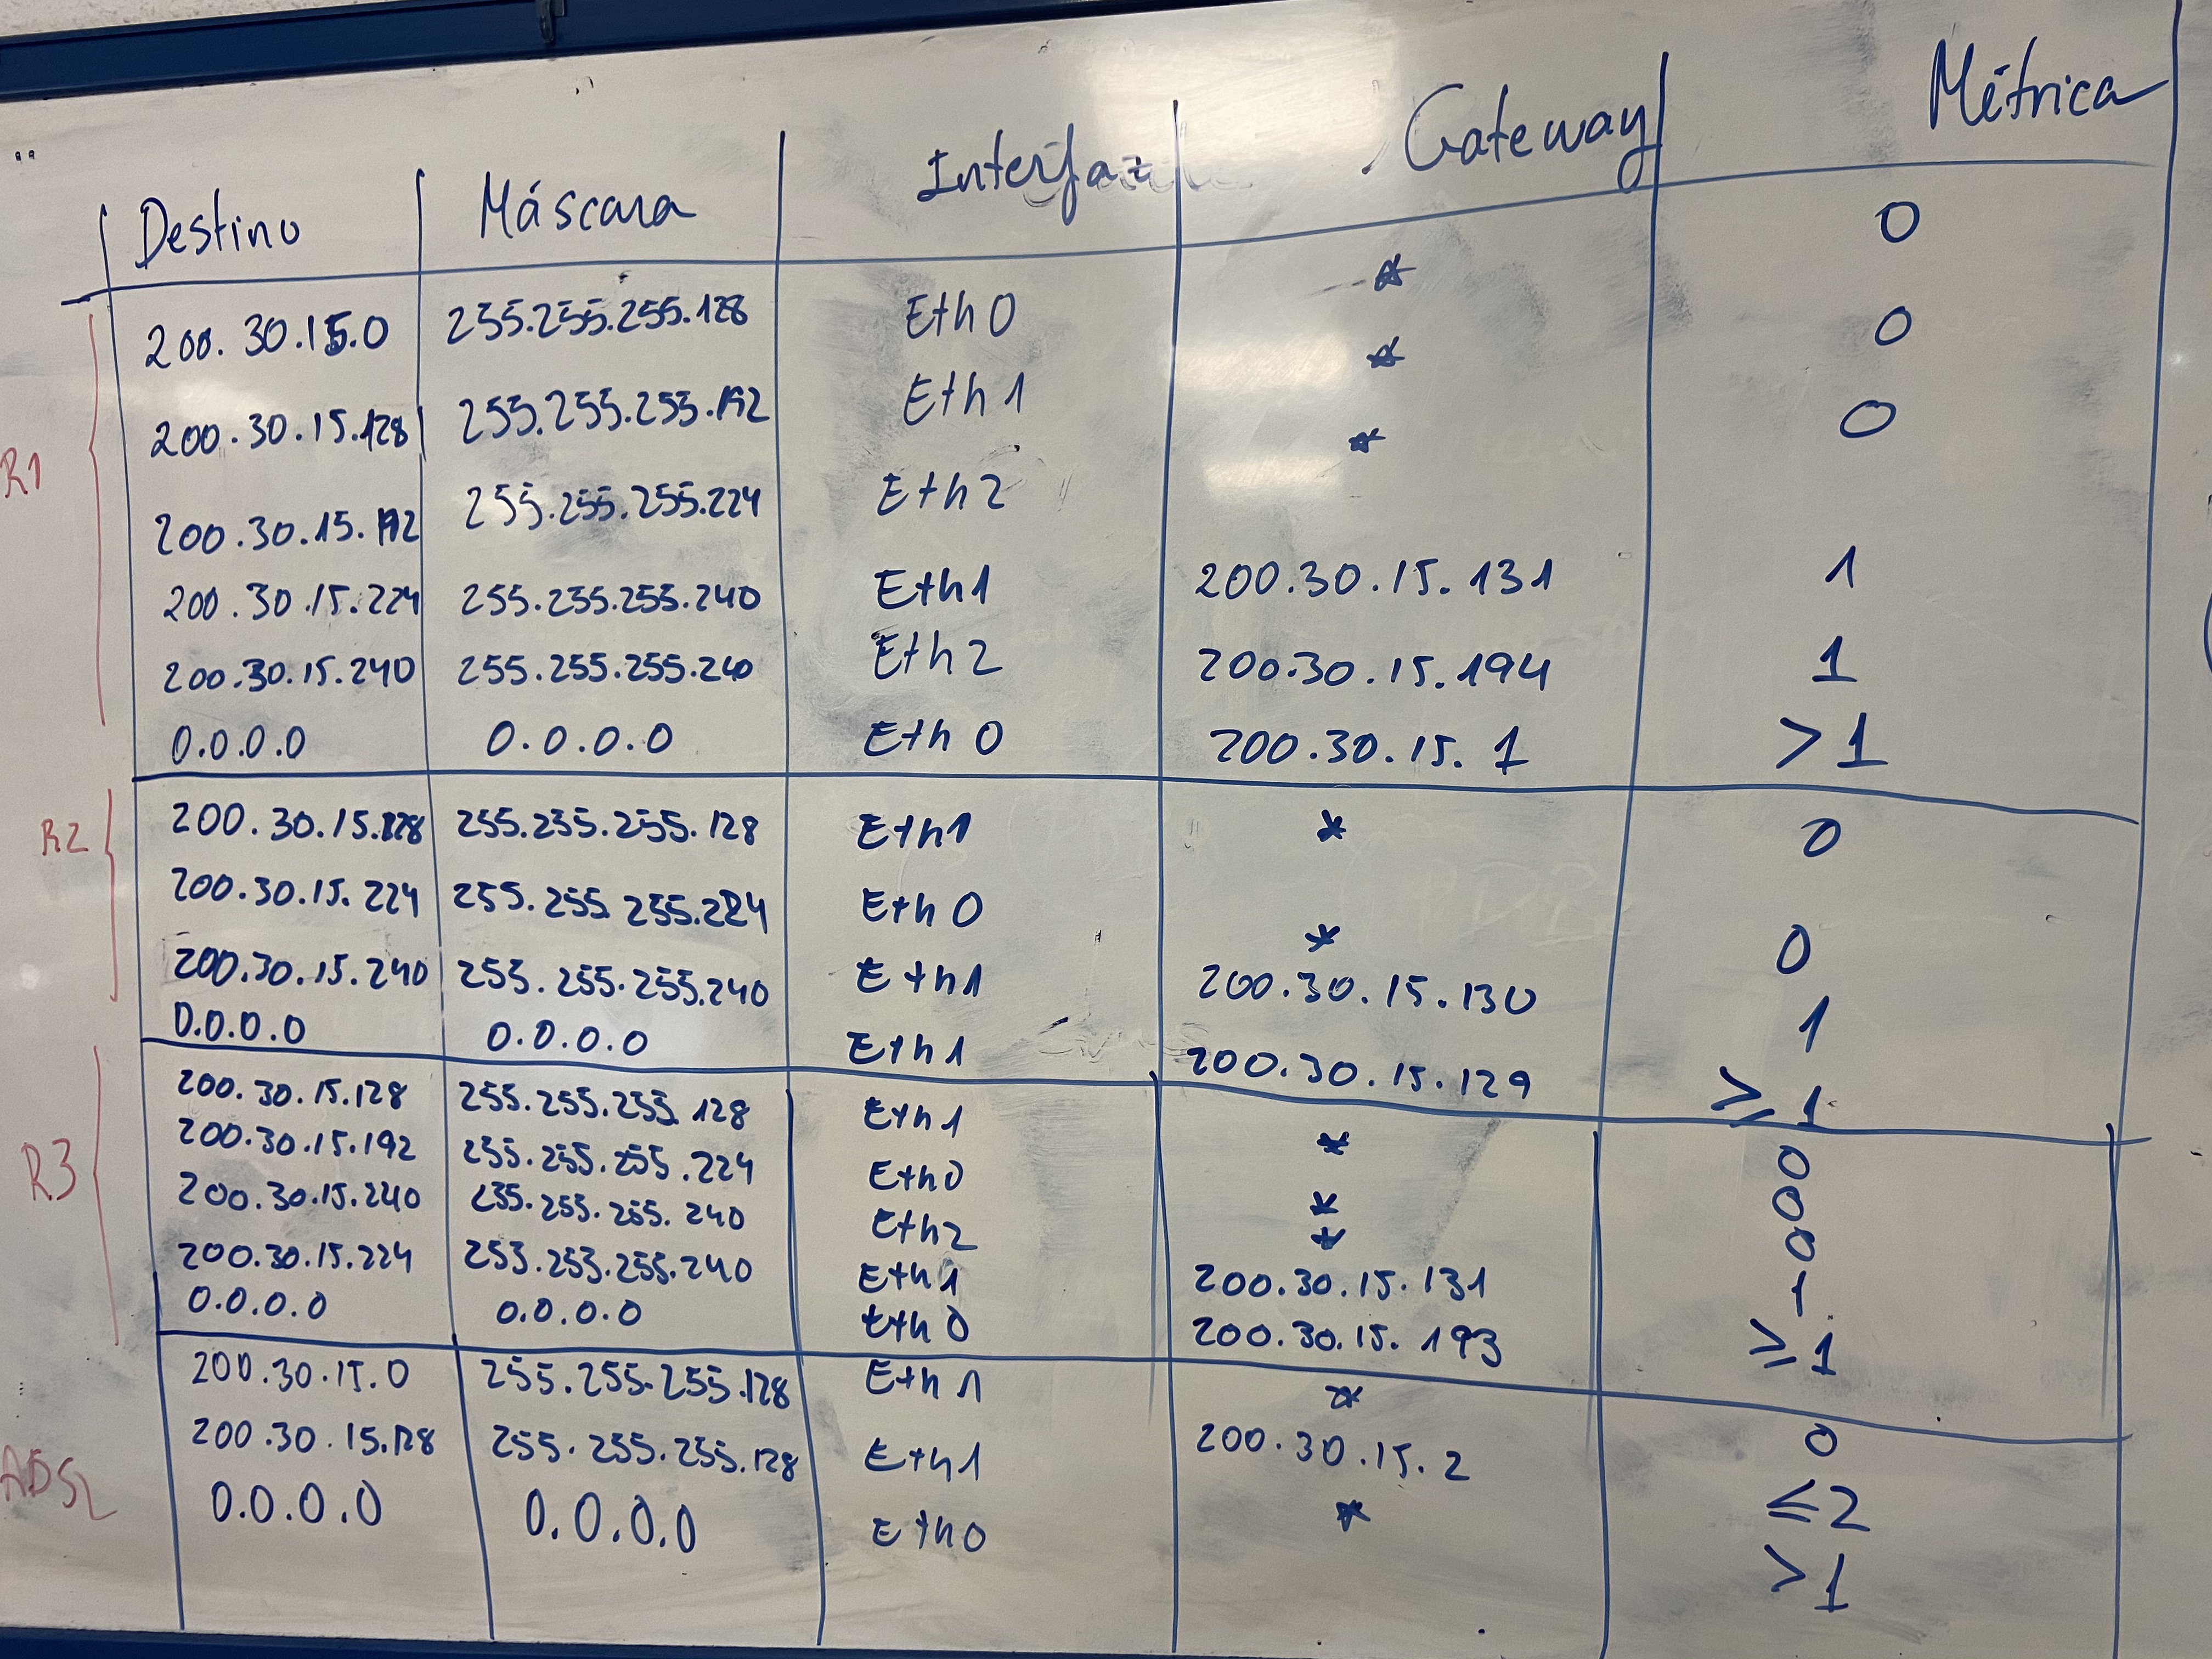 Destino Máscara Interfaz Gateway Métrica
R1
200.30.15.0 255.255.255.128 Eth0 * 0
200.30.15.128 255.255.255.192 Eth1 * 0
200.30.15.192 255.255.255.224 Eth2 * 0
200.30.15.224 255.255.255.240 Eth1 200.30.15.131 1
200.30.15.240 255.255.255.240 Eth2 200.30.15.194 1
0.0.0.0 0.0.0.0 Eth0 200.30.15.1 >1
R2
200.30.15.128 255.255.255.128 Eth1 * 0
200.30.15.224 255.255.255.224 Eth0 * 0
200.30.15.240 255.255.255.240 Eth1 200.30.15.130 1
0.0.0.0 0.0.0.0 Eth1 200.30.15.129 ≥1
R3
200.30.15.128 255.255.255.128 Eth1 * 0
200.30.15.192 255.255.255.224 Eth0 * 0
200.30.15.240 255.255.255.240 Eth2 * 0
200.30.15.224 255.255.255.240 Eth1 200.30.15.131 1
0.0.0.0 0.0.0.0 Eth0 200.30.15.193 ≥1
ADSL
200.30.15.0 255.255.255.128 Eth1 * 0
200.30.15.128 255.255.255.128 Eth1 200.30.15.2 ≤2
0.0.0.0 0.0.0.0 Eth0 * >1